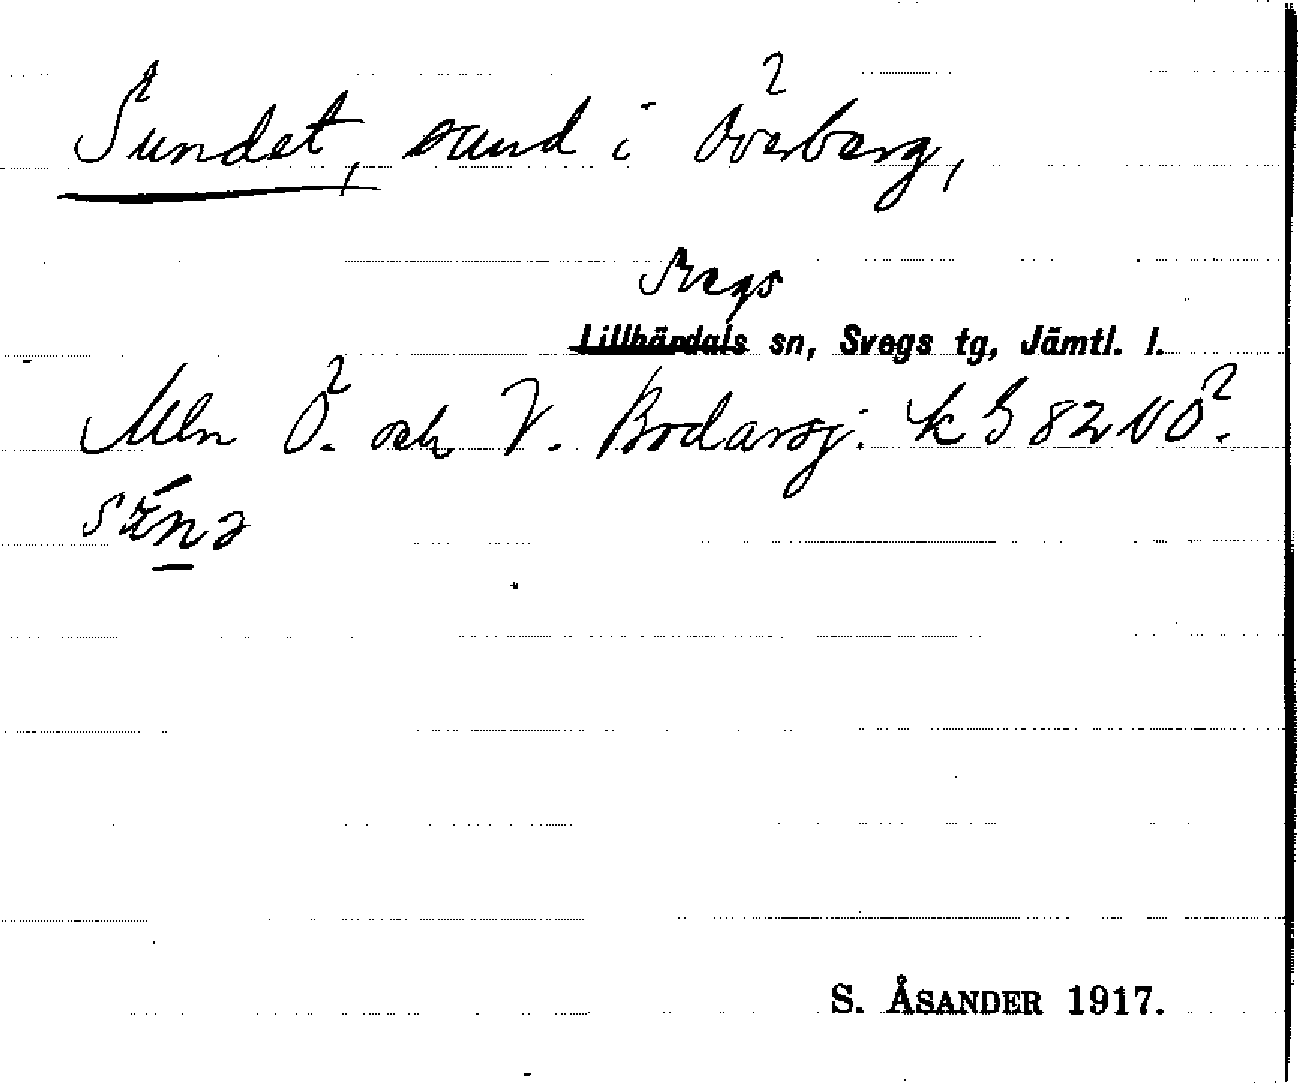 Sundet, sund i Överberg,
Svegs
Lillhärdals sn, Svegs tg, Jämtl. l.
Mln Ö. och V. Brodarsj. k G 82 NÖ.
S. ÅSANDER 1917.